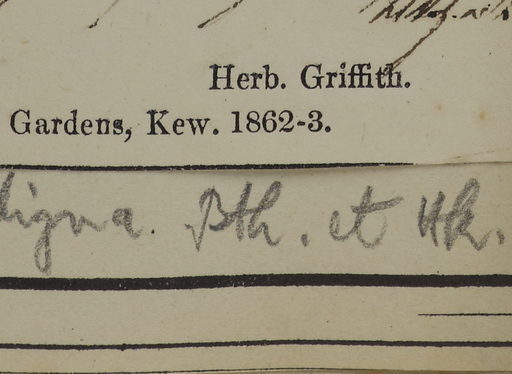 Herb. Griffith.
Gardens, Kew. 1862-3.
Bth. et Hk.